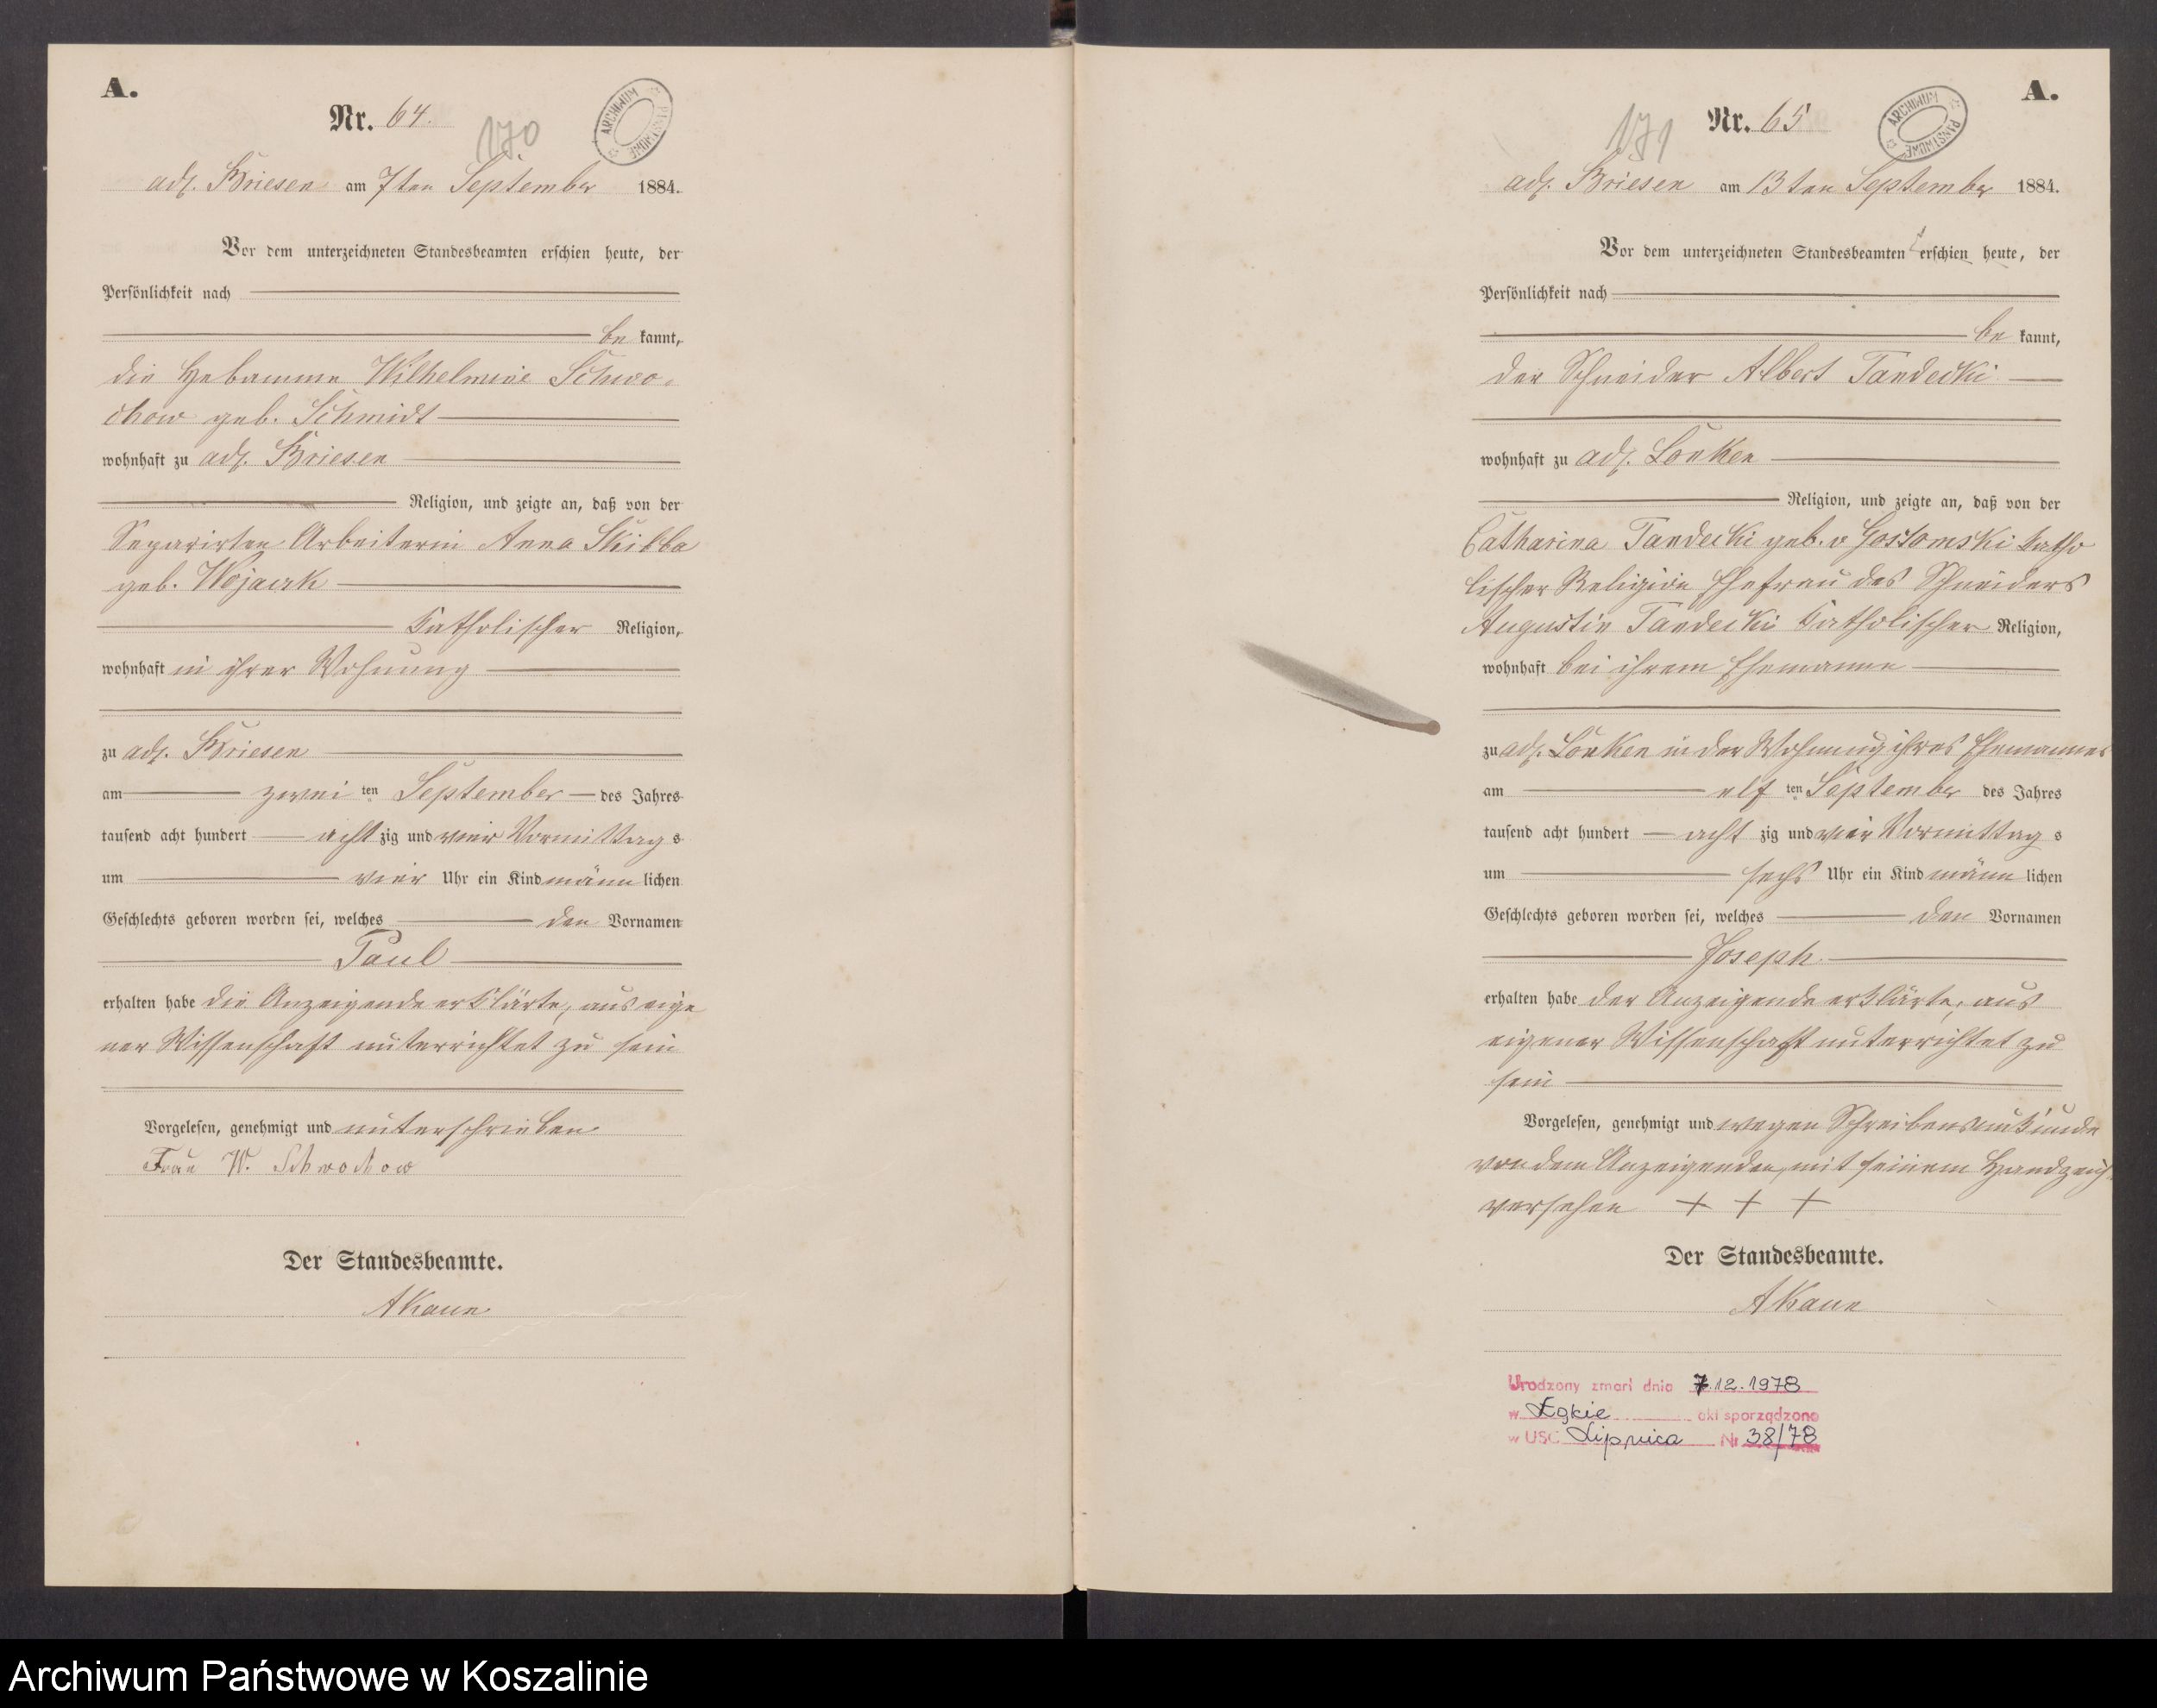 A.
Nr. 64.
170
ARCHIWUM PAŃSTWOWE
adl. Briesen am 7ten September 1884.
Vor dem unterzeichneten Standesbeamten erschien heute, der
Persönlichkeit nach
be kannt,
die Hebamme Wilhelmine Schwo-
chow geb. Schmidt
wohnhaft zu adl. Briesen
Religion, und zeigte an, daß von der
Separirten Arbeiterin Anna Skibba
geb. Wojack
katholischer Religion,
wohnhaft in ihrer Wohnung
zu adl. Briesen
am zwei ten September des Jahres
tausend acht hundert acht zig und vier Vormittag s
um vier Uhr ein Kind männ lichen
Geschlechts geboren worden sei, welches den Vornamen
Paul
erhalten habe die Anzeigende erklärte, aus eige
ner Wissenschaft unterrichtet zu sein
Vorgelesen, genehmigt und unterschrieben
Frau W. Schwochow
Der Standesbeamte.
A Kaun
A.
Nr. 65
171
ARCHIWUM PAŃSTWOWE
adl. Briesen am 13ten September 1884.
Vor dem unterzeichneten Standesbeamten erschien heute, der
Persönlichkeit nach
be kannt,
der Schneider Albert Tandecki
wohnhaft zu adl. Lonken
Religion, und zeigte an, daß von der
Catharina Tandecki geb. v Gostomski katho
lischer Religion Ehefrau des Schneiders
Augustin Tandecki katholischer Religion,
wohnhaft bei ihrem Ehemanne
zu adl. Lonken in der Wohnung ihres Ehemannes
am elf ten September des Jahres
tausend acht hundert acht zig und vier Vormittag s
um sechs Uhr ein Kind männ lichen
Geschlechts geboren worden sei, welches den Vornamen
Joseph
erhalten habe der Anzeigende erklärte, aus
eigener Wissenschaft unterrichtet zu
sein
Vorgelesen, genehmigt und wegen Schreibensunkunde
von dem Anzeigenden, mit seinem Handzeich
versehen + + +
Der Standesbeamte.
A Kaun
Urodzony zmarł dnia 7.12.1978
w Łąkie akt sporządzono
w USC Lipnica Nr 38/78
Archiwum Państwowe w Koszalinie